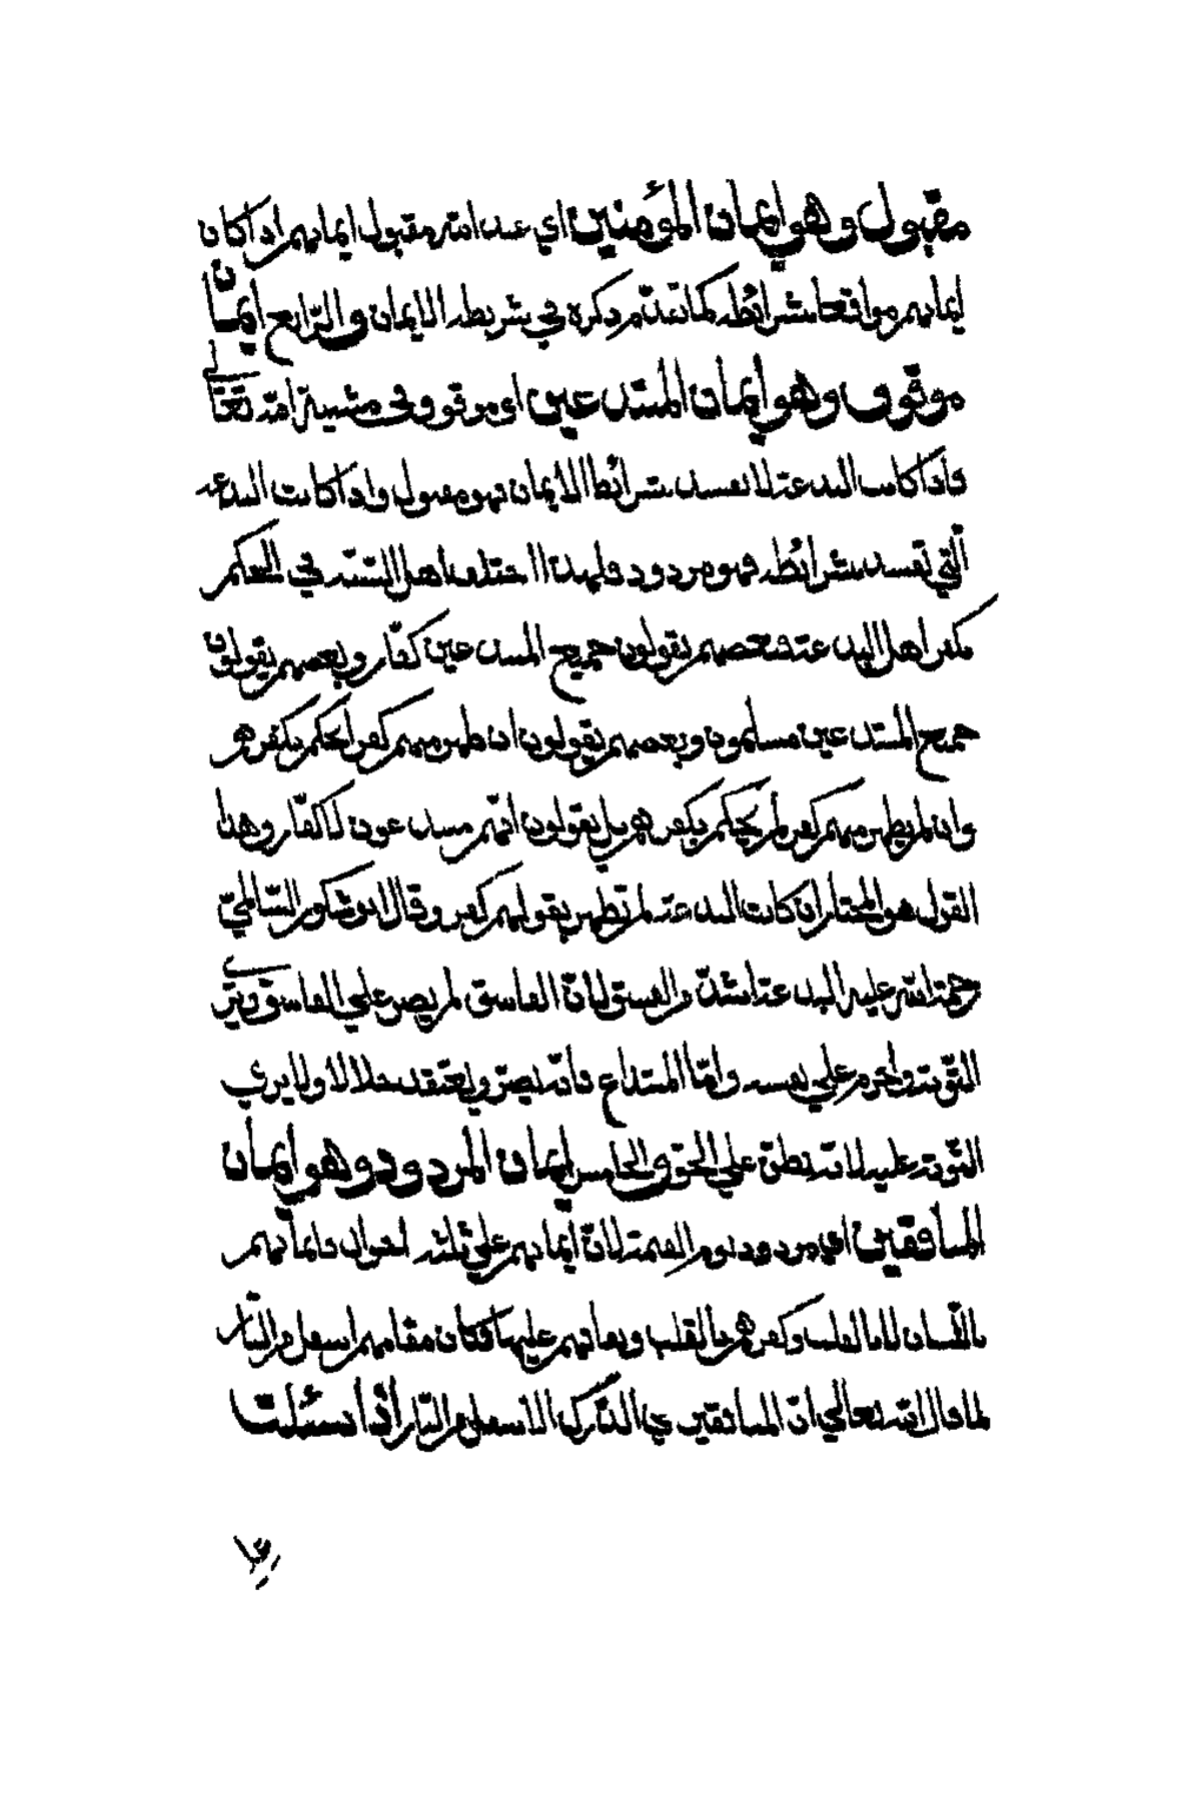 مقبول وهو إيمان المؤمنين اي عند الله مقبول ايمانهم اذا كان
ايمانهم موافقا بشرائطه كما تقدّم ذكره في شريطه الايمان والرّابع إيمان
موقوف وهو إيمان المبتدعين اي موقوف في مشيية الله تعالى
فاذا كانت البدعة لا تفسد شرائط الايمان فهو مقبول واذا كانت البدعة
الّتي تفسد شرائطه فهو مردود فلهذا اختلف اهل السّنّة في الحكم
بكفر اهل البدعة فبعضهم يقولون جميع المبتدعين كفّار وبعضهم يقولون
جميع المبتدعين مسلمون وبعضهم يقولون ان ظهر منهم كفر الحكم بكفرهم
وان لم يظهر منهم كفر لم يحكم بكفرهم بل يقولون انّهم مبتدعون لا كفّار وهذا
القول هو المختار ان كانت البدعة لم تظهر بقولهم كفر وقال ابو شكور السّالميّ
رحمة الله عليه البدعة اشدّ من الفسق لانّ الفاسق لم يصر علي الفاسق ويري
التّوبة واجرم علي نفسه وامّا المبتداع فانّه يصرّ ويعتقده حلالا ولا يري
التّوبة عليه لانّه نطق علي الحقّ والخامس إيمان المردود وهو إيمان
المنافقين اي مردود يوم القيمة لانّ ايمانهم علي ثلثة احوال فايمانهم
باللّسان لا بالقلب وكفرهم بالقلب ونفاقهم عليها فكان مقامهم اسفل من النّار
لما قال الله تعالي انّ المنافقين في الدّرك الاسفل من النّار اذا سئلت